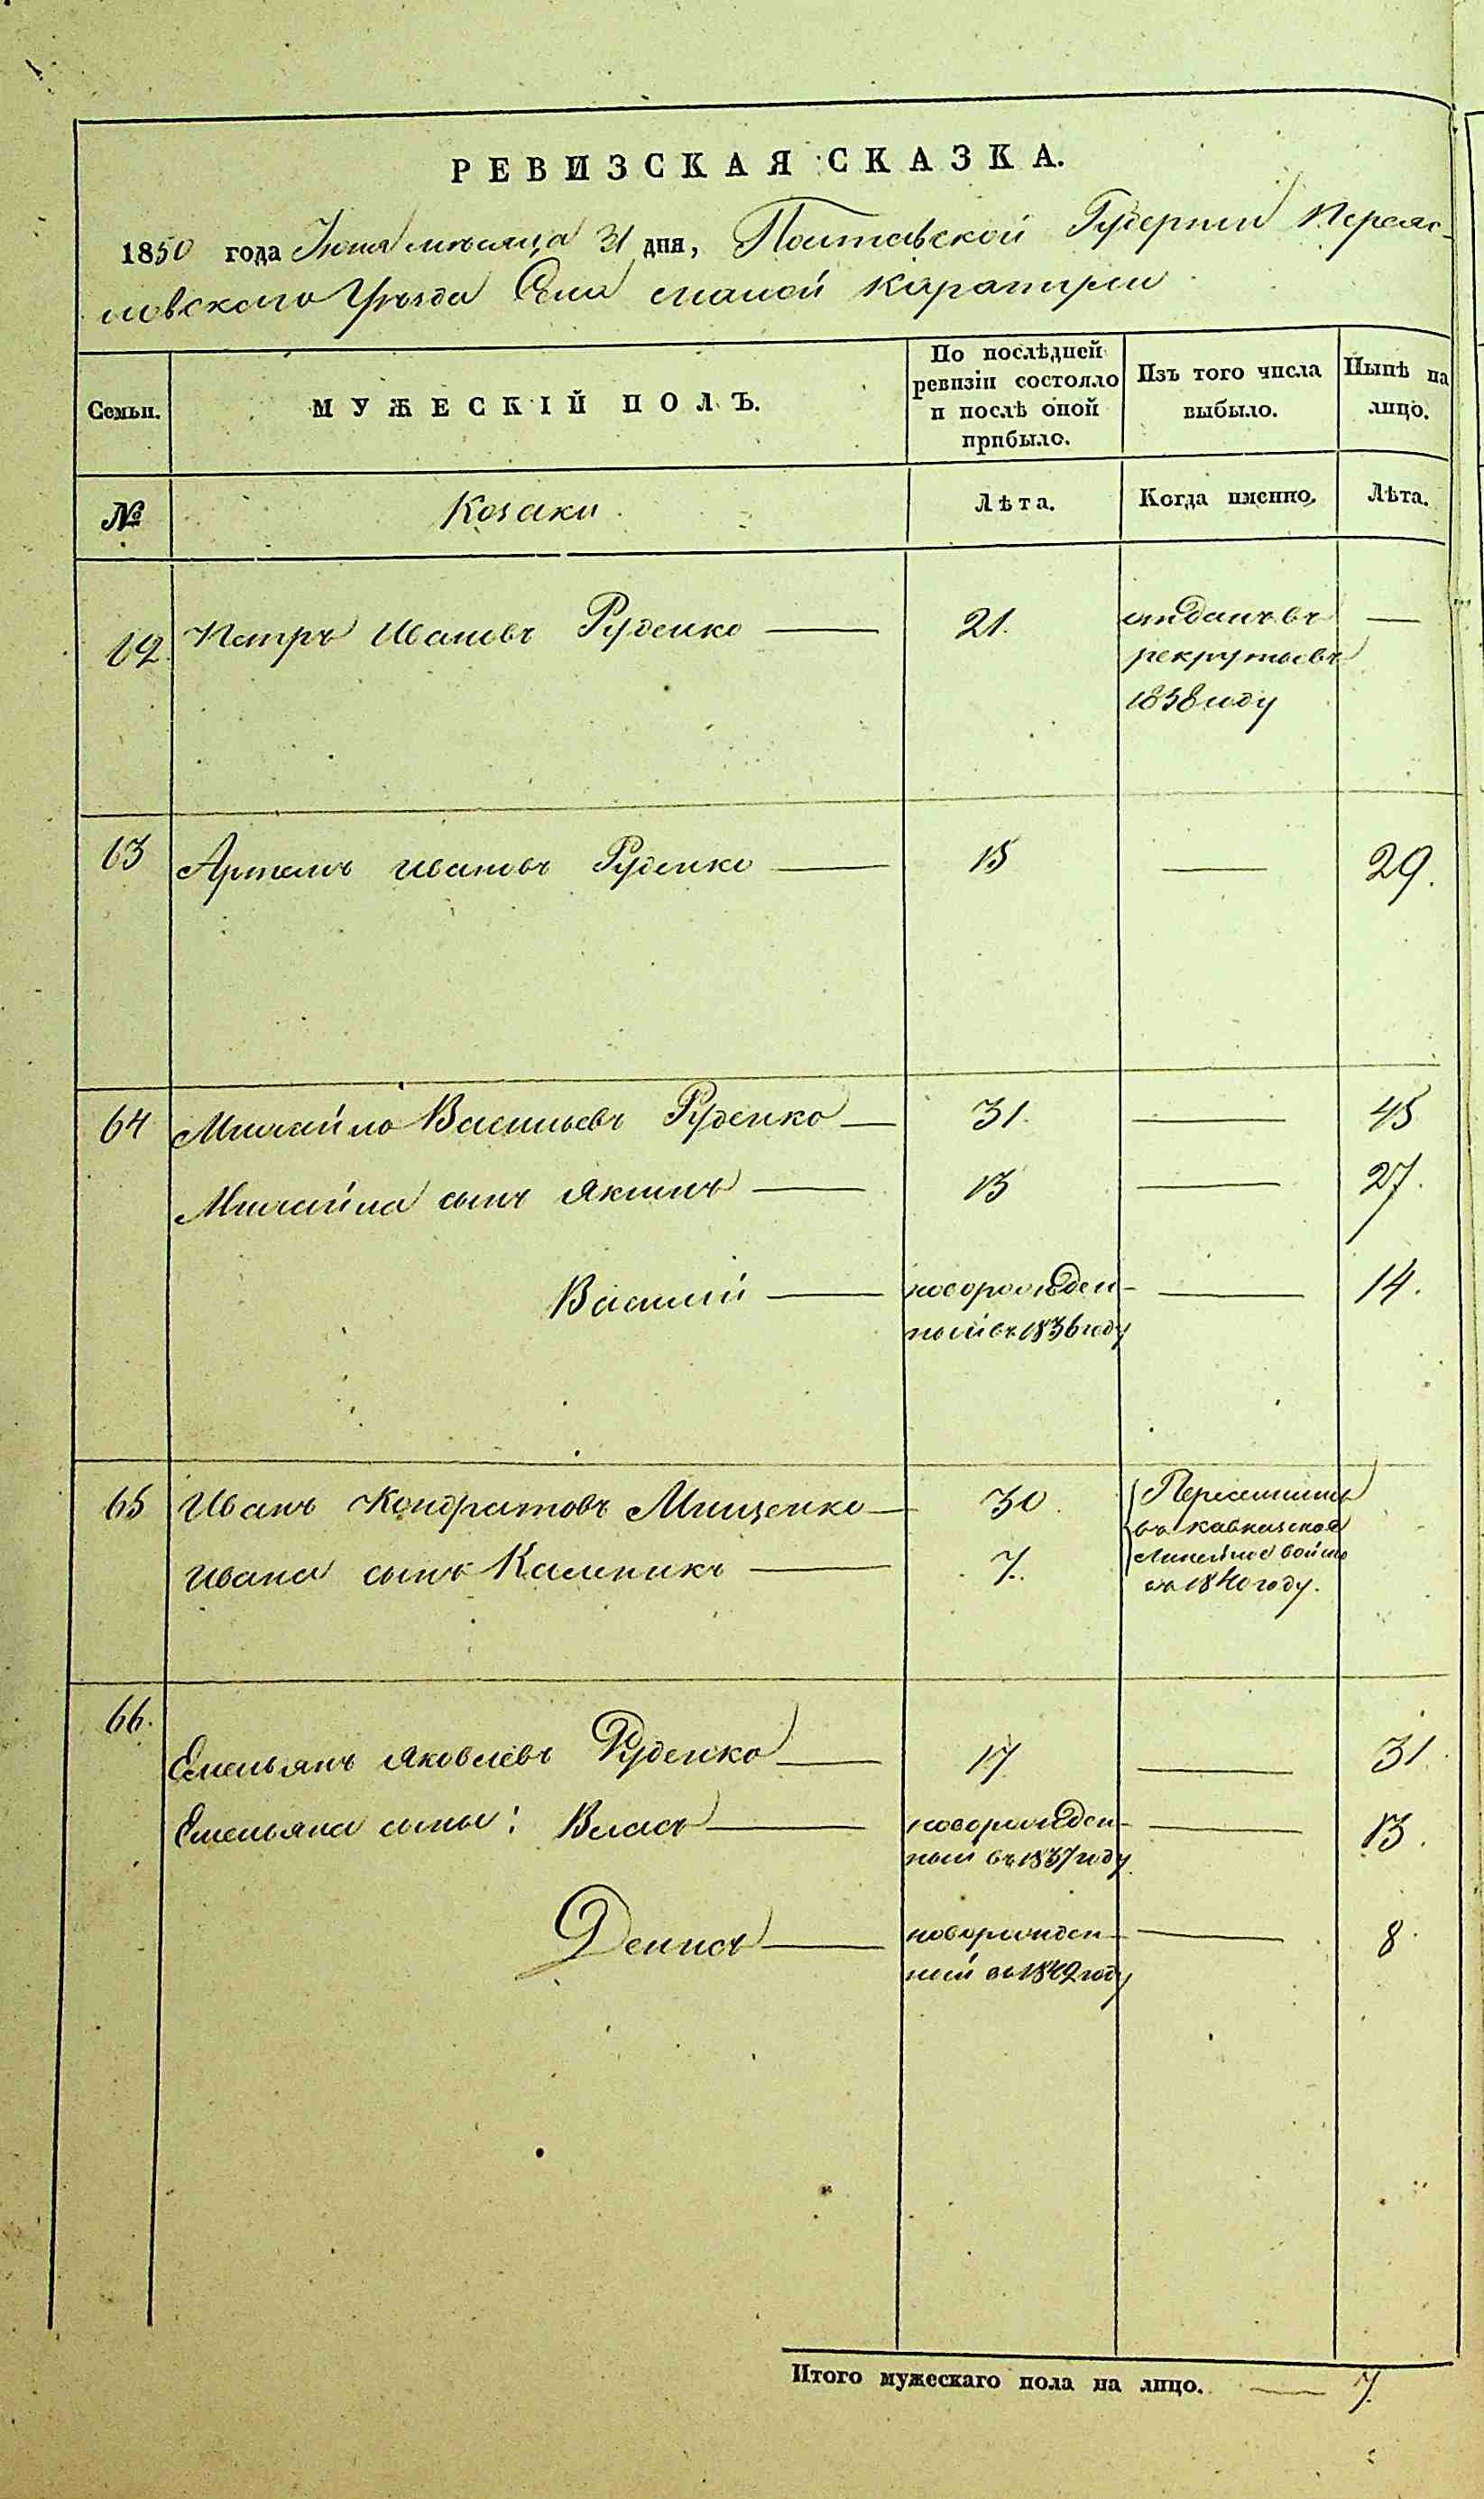 РЕВИЗСКАЯ СКАЗКА.
1850 года Июля мѣсяца 31 дня, Полтавской Губерніи Переяс-
ловскаго Уѣзда Села малой Каратули
Семьи. МУЖЕСКІЙ ПОЛЪ. По послѣдней ревизіи состояло и послѣ оной прибыло. Изъ того числа выбыло. Нынѣ на лицо.
№ Козаки Лѣта. Когда именно. Лѣта.
62 Петръ Ивановъ Руденко — 21. отданъ въ —
рекруты въ
1838 году
63 Артемъ Ивановъ Руденко — 15 — 29.
64 Михайло Васильевъ Руденко — 31. — 45
Михайла сынъ Якимъ — 13 — 27.
Василій — новорожден- — 14.
ный въ 1836 году
65 Иванъ Кондратовъ Мищенко — 30. Переселились
въ Кавказское
Ивана сынъ Каленикъ — 7. Линейное войско
въ 1840 году.
66.
Емельянъ Яковлевъ Руденко — 17 — 31.
Емельяна сыны: Власъ — новорожден- — 13.
ный въ 1837 году
Денисъ — новорожден- — 8
ный въ 1842 году
Итого мужескаго пола на лицо. — 7.